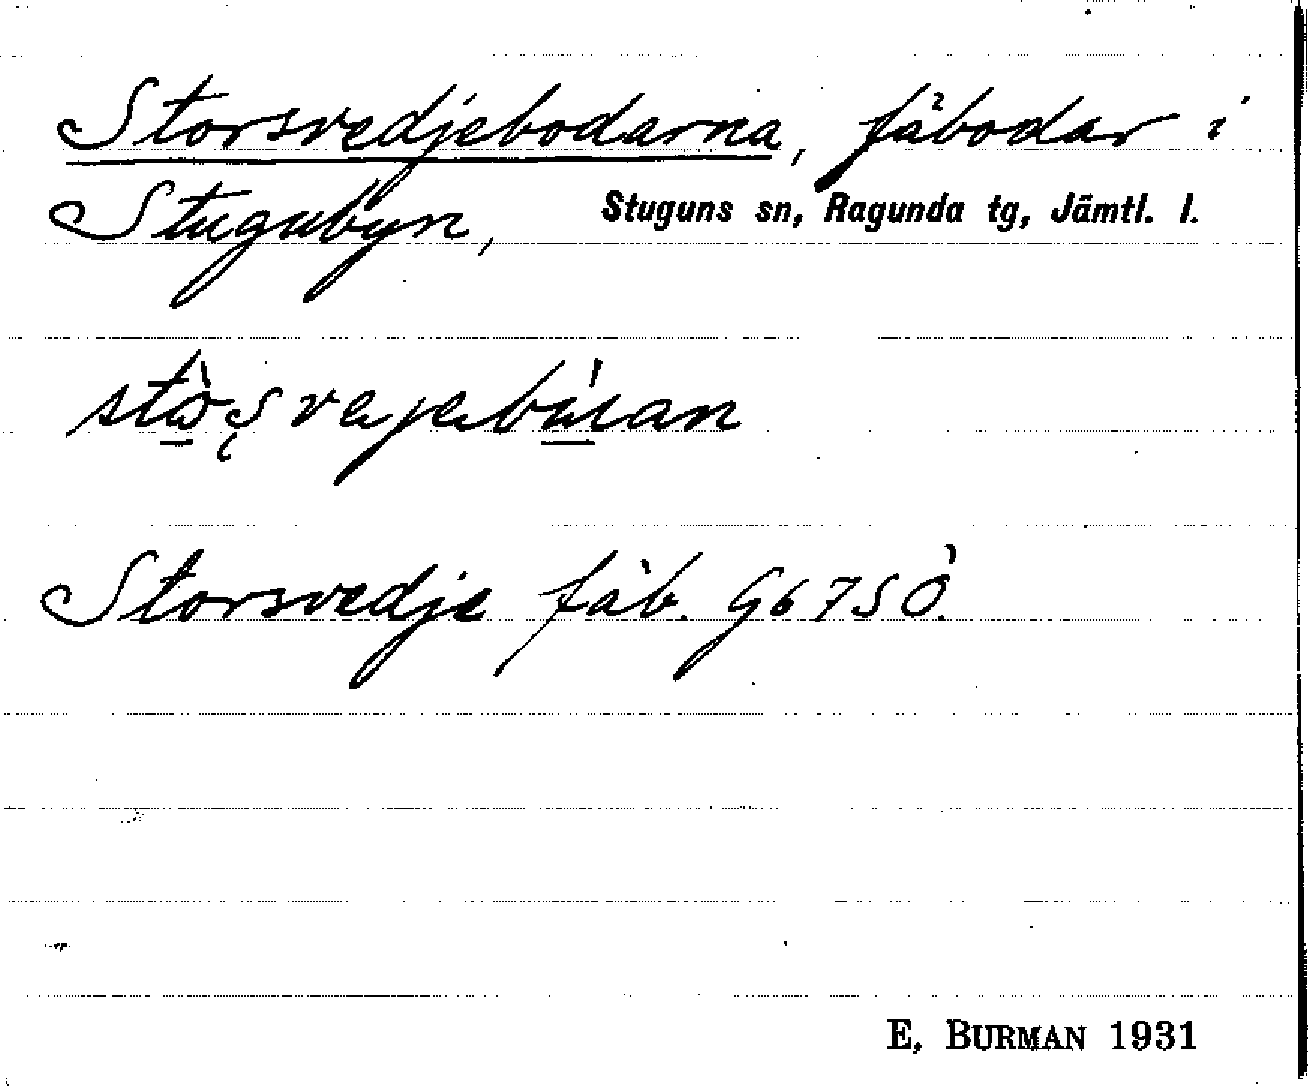 Storsvedjebodarna, fäbodar i
Stugubyn, Stuguns sn, Ragunda tg, Jämtl. l.
Storsvedje fäb. G67SÖ.
E. BURMAN 1931